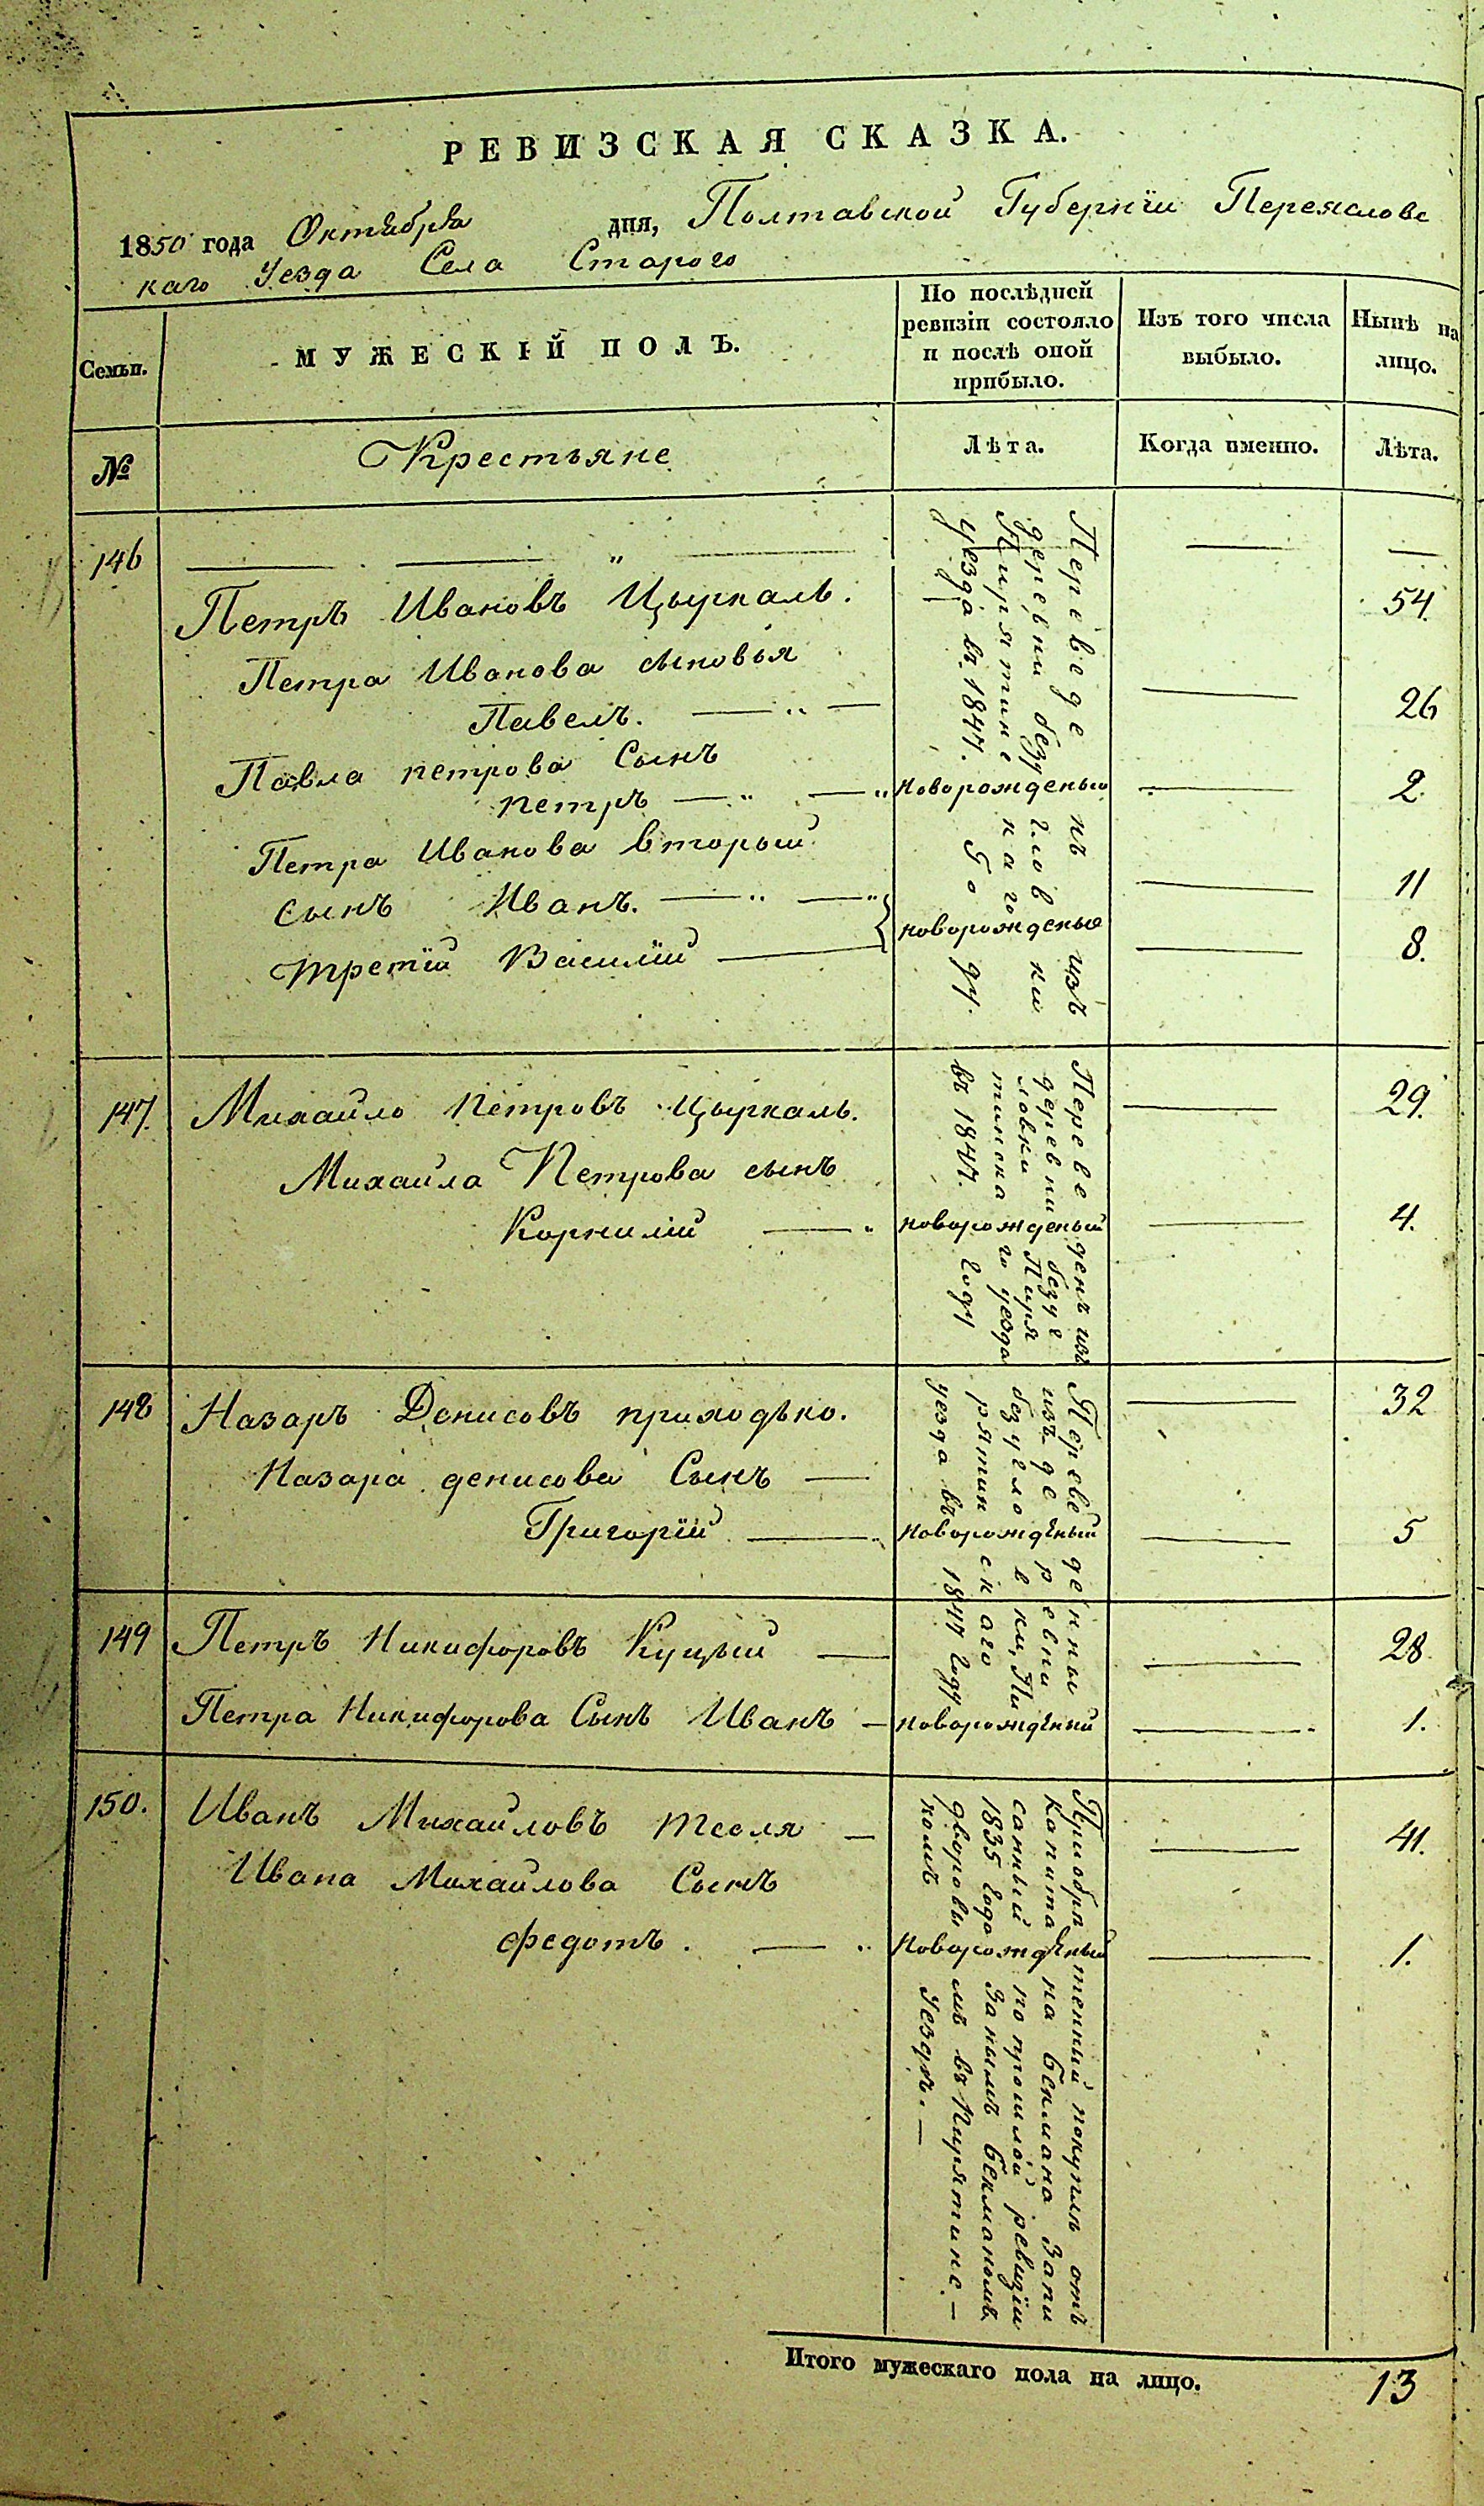 РЕВИЗСКАЯ СКАЗКА.
1850 года Октября дня, Полтавской Губернїи Переяславс
каго Уезда Села Старого
Семьи.
МУЖЕСКІЙ ПОЛЪ.
По послѣдней
ревизіи состояло
и послѣ оной
прибыло.
Изъ того числа
выбыло.
Нынѣ на
лицо.
№
Крестьяне
Лѣта.
Когда именно.
Лѣта.
146
Петръ Ивановъ Цыркаль. 54.
Петра Иванова сыновья
Павелъ. 26
Переведенъ изъ
деревни безугловки
Пирятинскаго
уезда въ 1844. году.
Павла петрова Сынъ
петръ новорожденый 2.
Петра Иванова вторый
сынъ Иванъ. 11
новорожденые
третїй Василїй 8.
147. Михайло Петровъ Цыркаль. 29.
Переведенъ изъ
деревни безуг
ловки Пиря
тинскаго уезда
въ 1847. году
Михайла Петрова сынъ
Корнилїй новорожденый 4.
148 Назаръ Денисовъ приходько. 32
Переведенны
изъ деревни
безугловки, Пи
рятинскаго
уезда въ 1847 году
Назара денисова Сынъ
Григорїй новорожденый 5
149 Петръ Никифоровъ Куцый 28.
Петра Никифорова Сынъ Иванъ новорожденый 1.
150. Иванъ Михайловъ тесля 41.
Приобретенный покупле отъ
Капитана бекмана запи
санный по прошлой ревизїи
1835 года Занымъ бекманомъ.
дворовымъ въ Пирятинс
комъ Уезде.
Ивана Михайлова Сынъ
федотъ. Новорожденый 1.
Итого мужескаго пола на лицо. 13